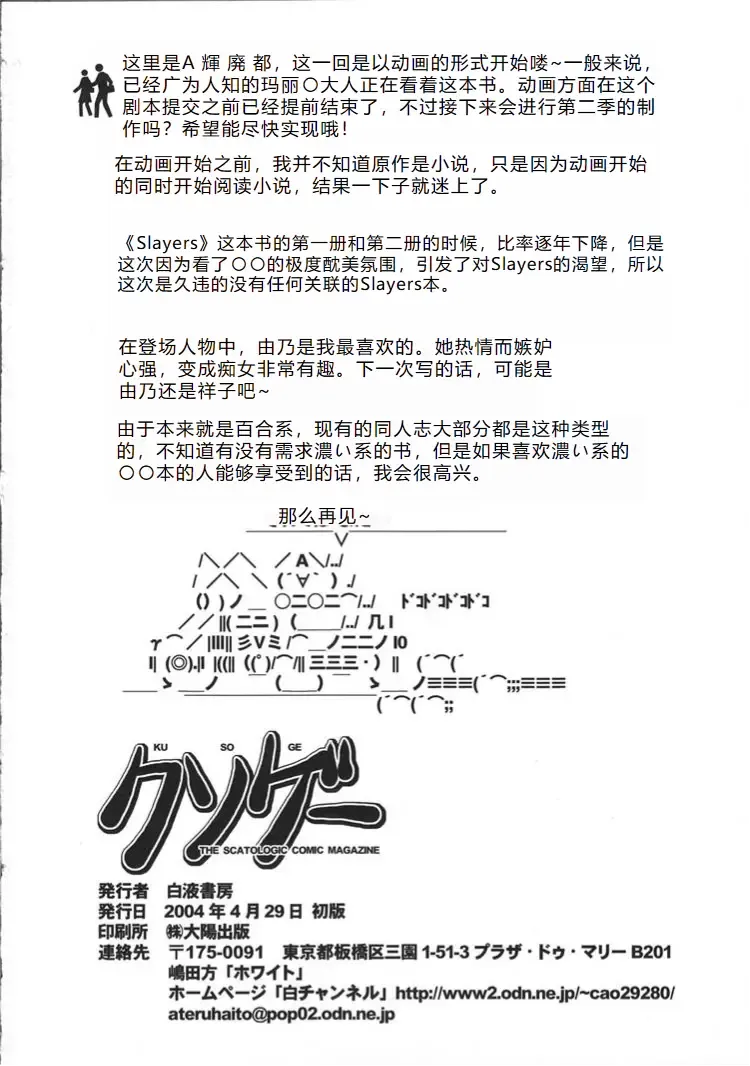 这里是A 輝 廃 都，这一回是以动画的形式开始喽~一般来说，
已经广为人知的玛丽〇大人正在看着这本书。动画方面在这个
剧本提交之前已经提前结束了，不过接下来会进行第二季的制
作吗？希望能尽快实现哦！
在动画开始之前，我并不知道原作是小说，只是因为动画开始
的同时开始阅读小说，结果一下子就迷上了。
《Slayers》这本书的第一册和第二册的时候，比率逐年下降，但是
这次因为看了〇〇的极度酖美氛围，引发了对Slayers的渴望，所以
这次是久违的没有任何关联的Slayers本。
在登场人物中，由乃是我最喜欢的。她热情而嫉妒
心强，变成痴女非常有趣。下一次写的话，可能是
由乃还是祥子吧~
由于本来就是百合系，现有的同人志大部分都是这种类型
的，不知道有没有需求濃い系的书，但是如果喜欢濃い系的
〇〇本的人能够享受到的话，我会很高兴。
那么再见~
ﾄﾞｺﾄﾞｺﾄﾞｺﾄﾞｺ
KU SO GE
クソゲー
THE SCATOLOGIC COMIC MAGAZINE
発行者 白液書房
発行日 2004年4月29日 初版
印刷所 ㈱大陽出版
連絡先 〒175-0091 東京都板橋区三園1-51-3プラザ・ドゥ・マリーB201
嶋田方「ホワイト」
ホームページ「白チャンネル」http://www2.odn.ne.jp/~cao29280/
ateruhaito@pop02.odn.ne.jp